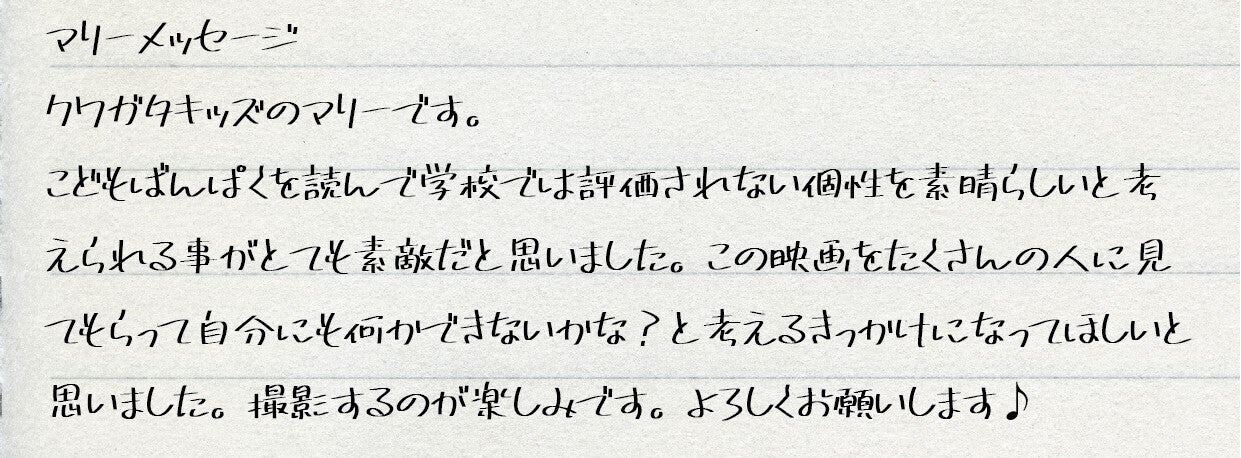 マリーメッセージ
クワガタキッズのマリーです。
こどもばんぱくを読んで学校では評価されない個性を素晴らしいと考
えられる事がとても素敵だと思いました。この映画をたくさんの人に見
てもらって自分にも何かできないかな？と考えるきっかけになってほしいと
思いました。撮影するのが楽しみです。よろしくお願いします♪